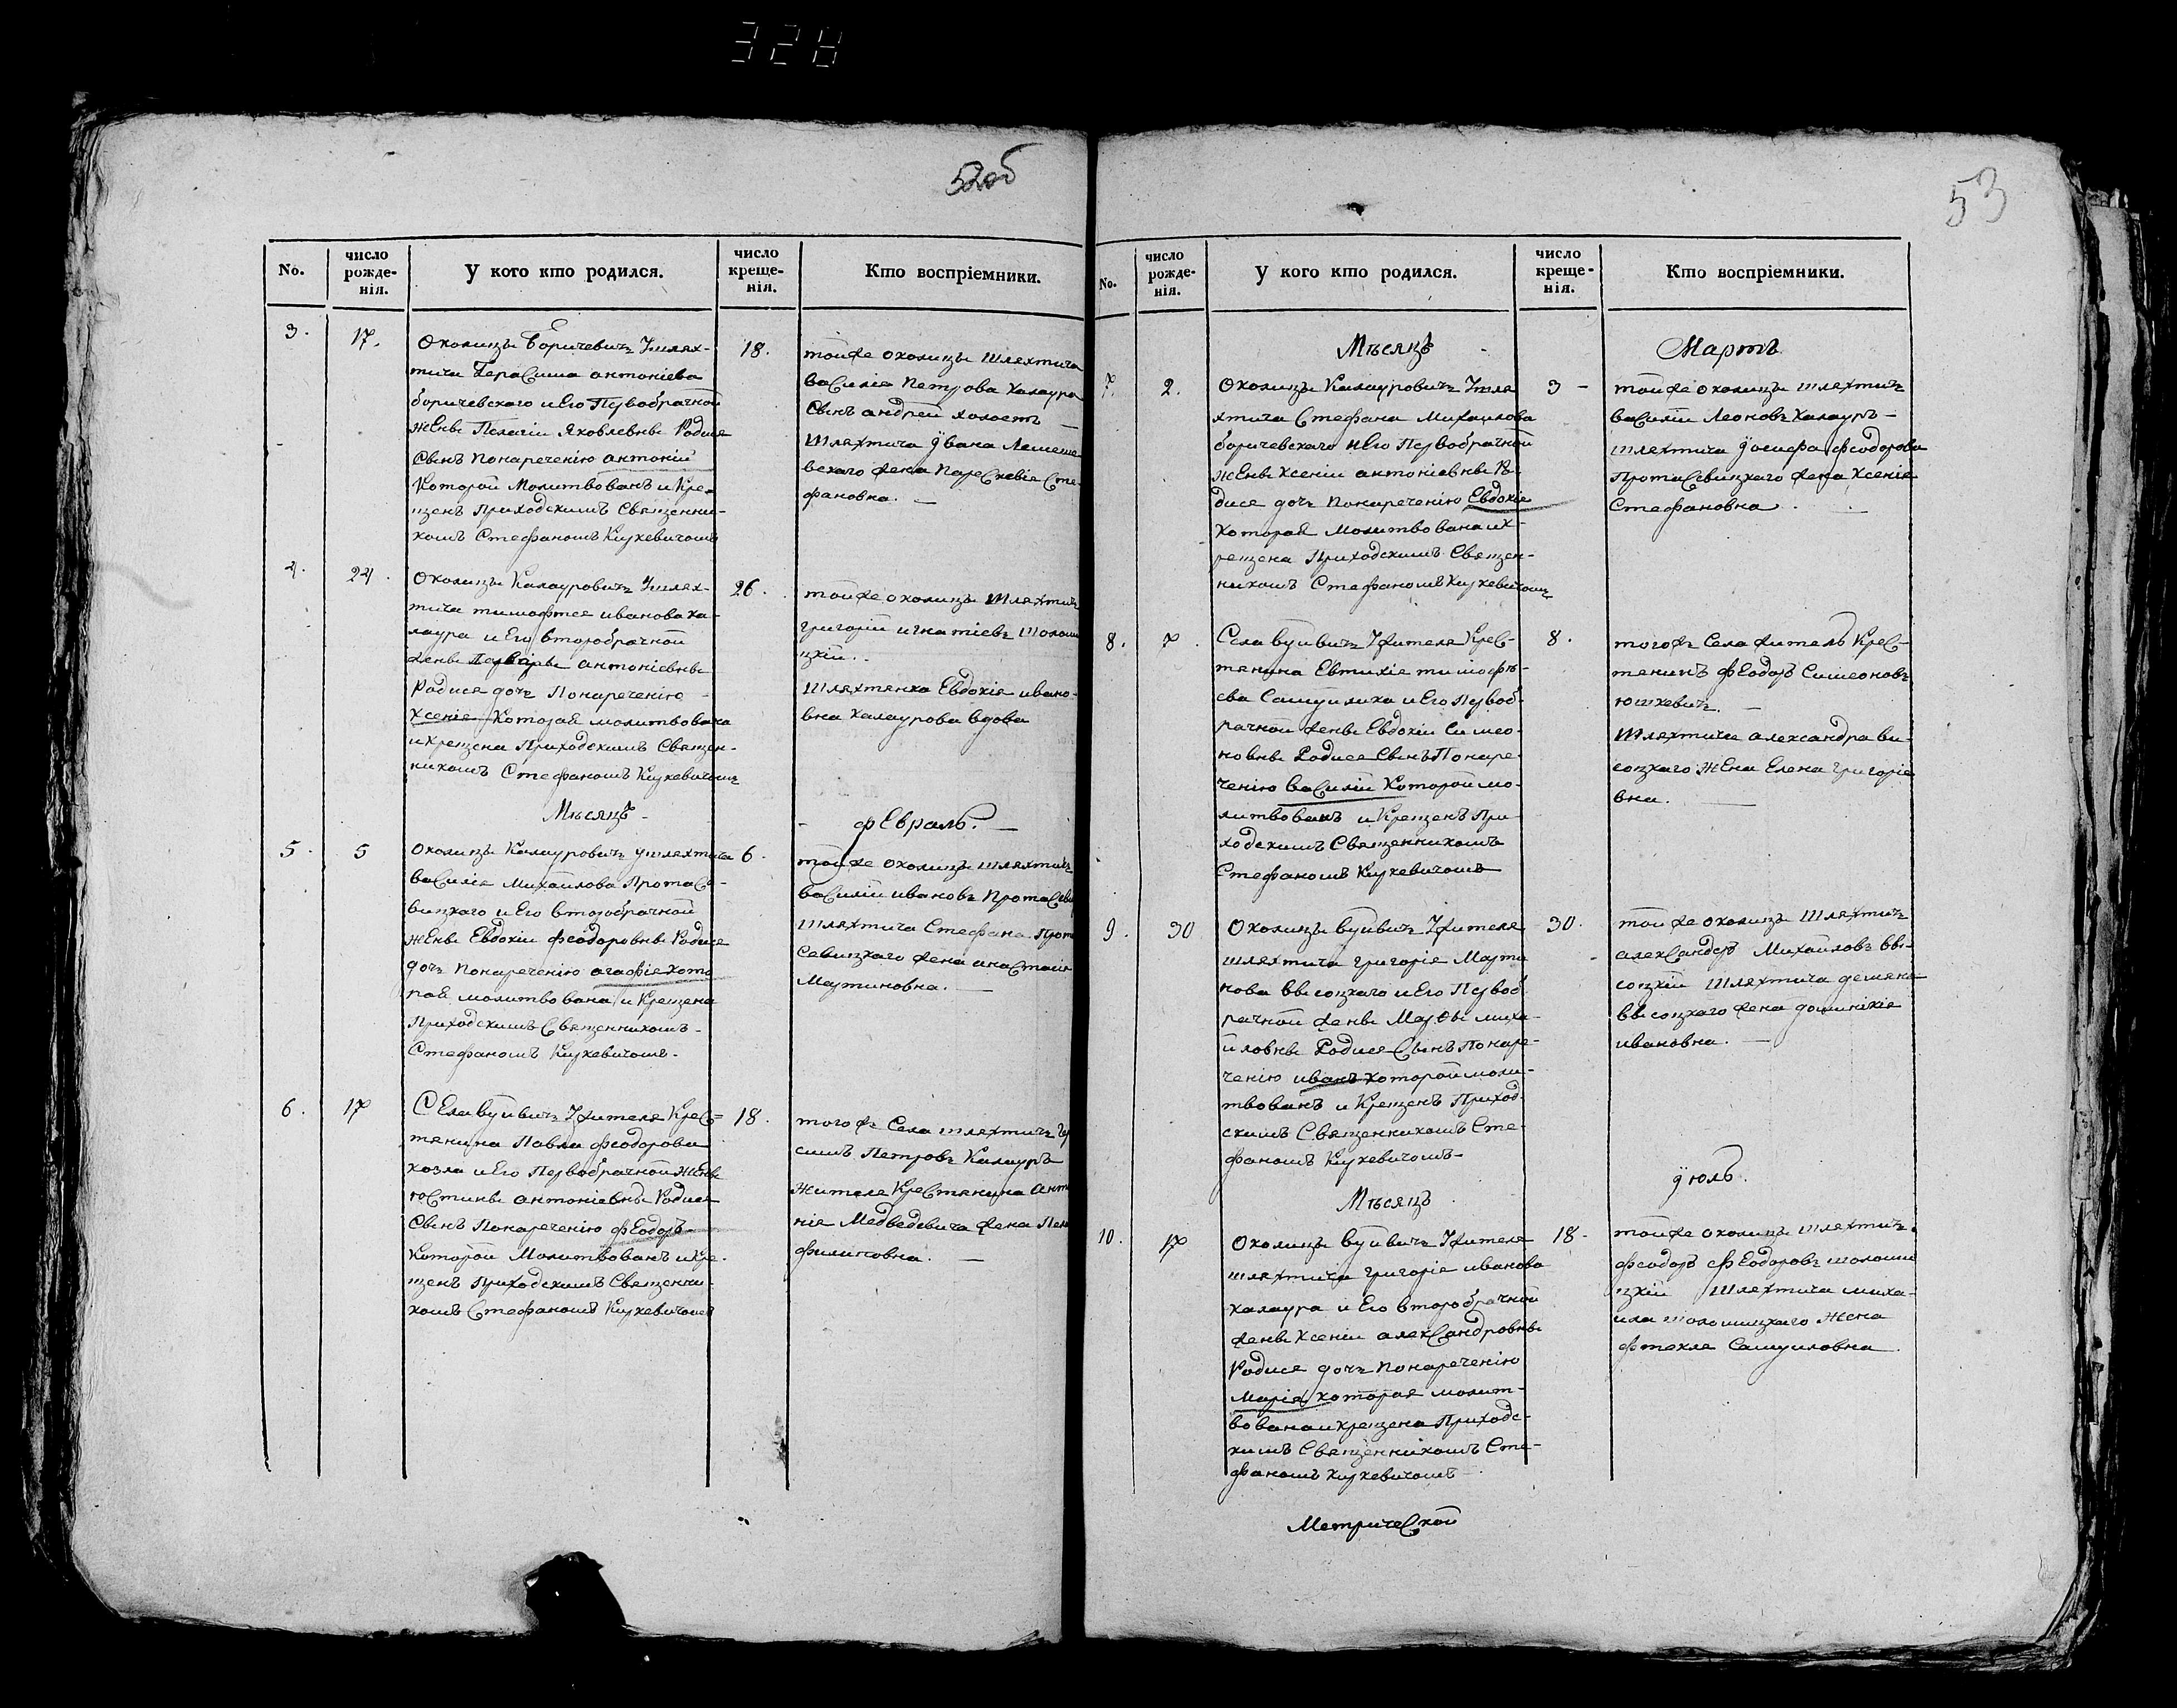 328
52об
No.
число рожде-нія.
У кого кто родился.
число креще-нія.
Кто воспріемники.
3.
17.
Околицы Боричевичъ Ушлях-
тича Герасима антоніева
боричевскаго и Его Первобрачной
жЕны Пелагіи Яковлевны Родися
Сынъ Понареченію антоній
Которой Молитвованъ и Кре-
щенъ Приходскимъ Священни-
комъ Стефаномъ Киркевичомъ
18.
тойже околицы шляхтича
василія Петрова Калаура
Сынъ андрей холостъ —
Шляхтича Ивана Лемеше
вскаго жена Параскевія Сте-
фановна. —
4.
24.
Околицы Калауровичъ Ушлях-
тича тимофтея иванова ка-
лаура и Его второбрачной
жены антоніевны
Родися дочъ Понареченію
Ксенія Которая молитвована
и крещена Приходскимъ Священ-
никомъ Стефаномъ Киркевичомъ
26.
тойже околицы Шляхтичъ
григорій игнатіевъ Шоломи
цкій.
Шляхтянка Евдокія ивано-
вна Калаурова вдова
Мѣсяцъ
фЕвраль.
5.
5
Околицы Калауровичъ ушляхтича
василія Михайлова Протасе-
вицкаго и Его второбрачной
жЕны Евдокіи Феодоровны Родися
дочъ Понареченію агафія кото
рая молитвована и Крещена
Приходскимъ Священникомъ
Стефаномъ Киркевичомъ.
6.
тойже околицы шляхтичъ
василій ивановъ Протасеви
шляхтича Стефана Прота
севицкаго жена анастасія
Мартиновна. —
6.
17
СЕла вуйвичъ Ужителя Крес-
тянина Павла Феодорова
козла и Его Первобрачной жЕны
юСтины антоніевны Родися
Сынъ Понареченію фЕодоръ
Которой Молитвованъ и Кре-
щенъ Приходскимъ Священни-
комъ Стефаномъ Киркевичомъ
18.
тогожъ Села шляхтичъ Ge
симъ Петровъ Калауръ
Жителя Крестянина Анто
нія Медведевича жена Пела
филиповна. —
53
No.
число рожде-нія.
У кого кто родился.
число креще-нія.
Кто воспріемники.
Мѣсяцъ
Мартъ
7.
2.
Околицы Калауровичъ Ушля
хтича Стефана Михайлова
боричевскаго и Его Первобрачной
жЕны Ксеніи антоніевны Ро-
дися дочъ Понареченію Евдокія
которая молитвована и к-
рещена Приходскимъ Священ-
никомъ Стефаномъ Киркевичомъ
3 -
тойже околицы шляхтичъ
василій Леоновъ Калауръ —
шляхтича Иосифа Феодорова
Протасевицкаго жена Ксенія
Стефановна.
8.
7.
Села вуйвичъ Ужителя Крес-
тянина Евтихія тимофѣ-
ева Самуилика и Его Первоб-
рачной жены Евдокіи Симео-
новны Родися Сынъ Понаре-
ченію василій Которой мо-
литвованъ и Крещенъ При-
ходскимъ Священникомъ
Стефаномъ Киркевичомъ
8.
тогожъ Села житель Крес-
тянинъ фЕодоръ Симеоновъ
юшкевичъ. —
Шляхтича александра ви-
соцкаго жЕна Елена григоріе
вна. —
9.
30
Околицы вуйвичъ Ужителя
шляхтича григорія Марти
нова высоцкаго и Его Первоб
рачной жены Марѳы миха-
йловны Родися Сынъ Понаре-
ченію иванъ которой моли-
твованъ и Крещенъ Приход-
скимъ Священникомъ Сте-
фаномъ Киркевичомъ
30.
тойже околицы Шляхтичъ
алеxандръ Михайловъ вы-
соцкій Шляхтича демяна
высоцкаго жена доминікія
ивановна. —
Мѣсяцъ
Июль.
10.
17
Околицы вуйвичъ Ужителя
шляхтича григорія иванова
калаура и Его второбрачной
жены Ксеніи александровны
Родися дочъ Понареченію
Марія которая молит-
вована и крещена Приходс-
кимъ Священникомъ Сте-
фаномъ Киркевичомъ
18.
тойже околицы шляхтичъ
феодоръ фЕодоровъ шоломи
цкій Шляхтича миха-
ила шоломицкаго жена
фтекля Самуиловна
Метрической